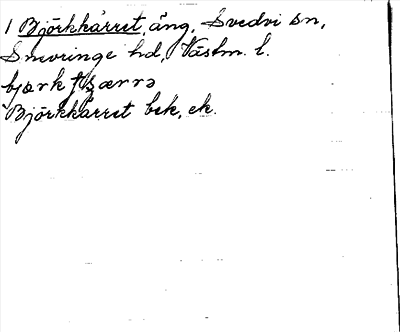 1 Björkkärret, äng, Svedvi sn,
Snevringe hd, Västm. l.
bjærk
Björkkärret bek, ek.